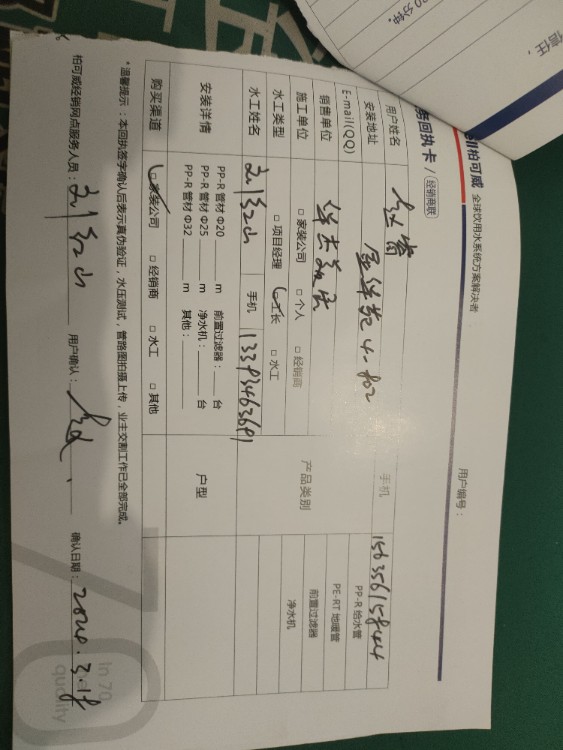 柏可威 全球饮用水系统方案解决者
务回执卡 / 经销商联
用户编号：
用户姓名
手机 15635615844
安装地址 4-802
E-mail(QQ)
销售单位
产品类别
PP-R 给水管
PE-RT 地暖管
前置过滤器
净水机
施工单位 □ 家装公司 □ 个人 □ 经销商
水工类型 □ 项目经理 长 □ 水工
水工姓名 刘红山 手机 13393463691
安装详情
PP-R 管材 Φ20 m 前置过滤器： 台
PP-R 管材 Φ25 m 净水机： 台
PP-R 管材 Φ32 m 其他：
户型
购买渠道 家装公司 □ 经销商 □ 水工 □ 其他
*温馨提示：本回执签字确认后表示真伪验证，水压测试，管路图拍摄上传，业主交割工作已全部完成。
柏可威经销网点服务人员：刘红山 用户确认： 确认日期：2024.3.18
00分钟。
信任，
in 70
quality